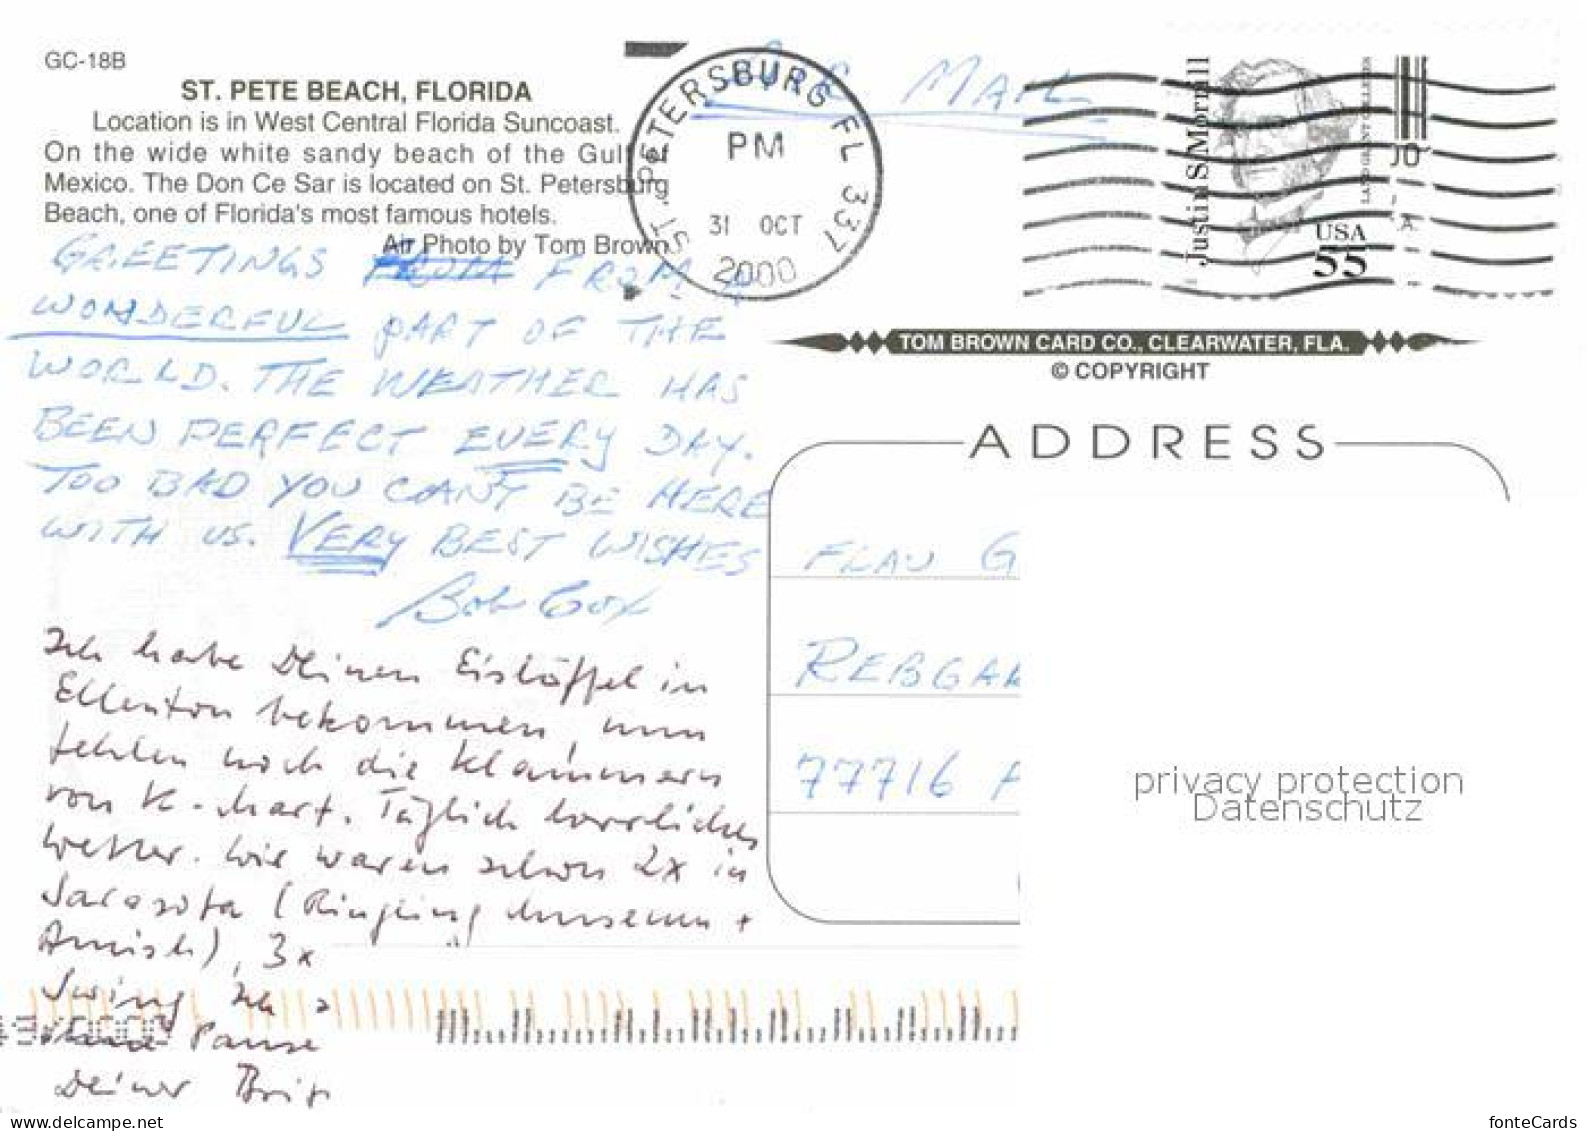 GC-18B
ST. PETE BEACH, FLORIDA
Location is in West Central Florida Suncoast.
On the wide white sandy beach of the Gulf of
Mexico. The Don Ce Sar is located on St. Petersburg
Beach, one of Florida's most famous hotels.
Air Photo by Tom Brown
ST. PETERSBURG FL 337
PM
31 OCT
2000
AIR MAIL
Justin S. Morrill
USA
55
TOM BROWN CARD CO., CLEARWATER, FLA.
© COPYRIGHT
GREETINGS FROM FROM A
WONDERFUL PART OF THE
WORLD. THE WEATHER HAS
BEEN PERFECT EVERY DAY.
TOO BAD YOU CAN'T BE HERE
WITH US. VERY BEST WISHES
Bob Cox
Ich habe Deinen Eislöffel in
Ellenton bekommen, nun
fehlen noch die Klammern
von K-Mart. Täglich herrliches
Wetter. Wir waren schon 2x in
Sarasota (Ringling Museum +
Amish), 3x
Swing Ich
ohne Pause
Deiner
ADDRESS
FLAU G
REBGAR
77716
privacy protection
Datenschutz
www.delcampe.net
fonteCards